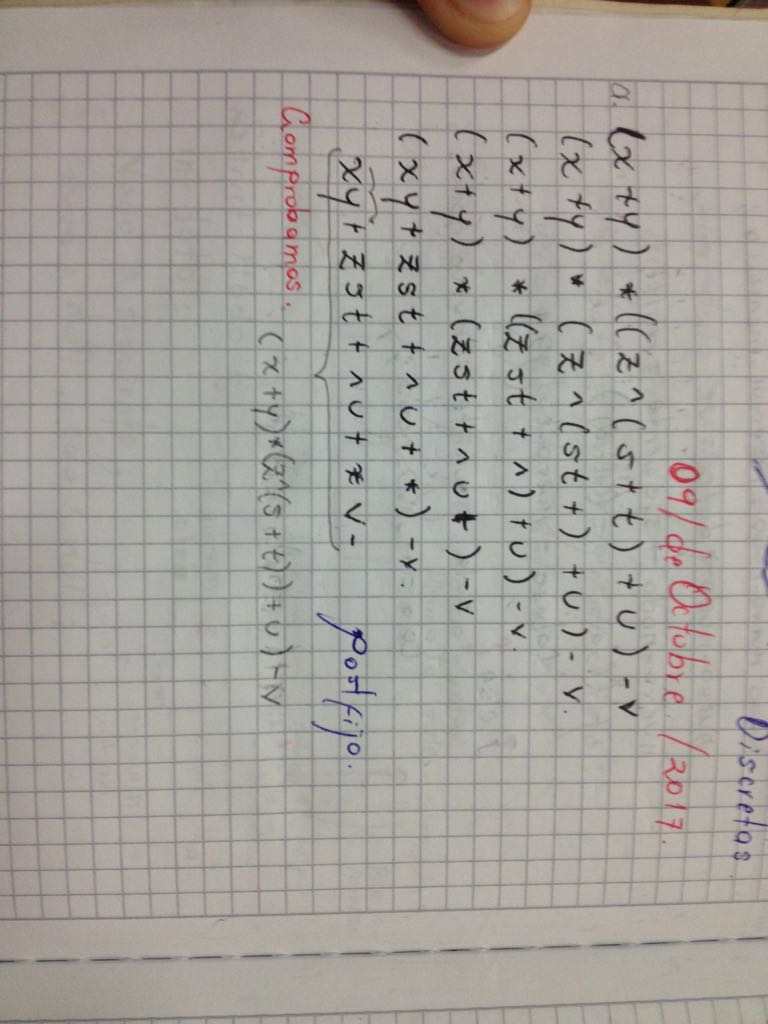 Discretas
09/de Octubre. /2017.
a. (x+y) * ((z ^ (s+t) + u) - v
(x+y) * (z ^ (st+) + u) - v.
(x+y) * ((z st + ^) + u) - v.
(x+y) * (z st + ^ u +) - v
(xy + z st + ^ u + *) - v.
xy + z st + ^ u + * v - postfijo.
Comprobamos. (x+y)*(z^(s+t))+u)-v